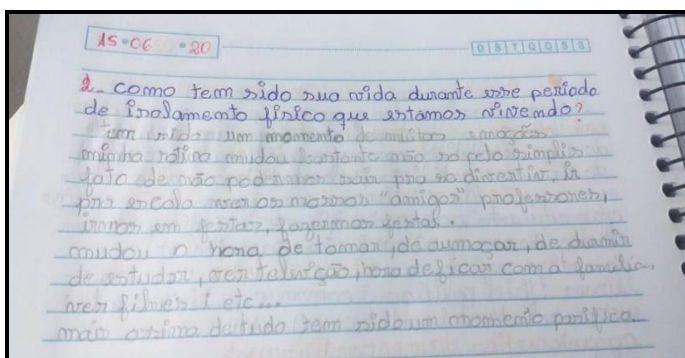 15.06 .20
D S T Q Q S S
2- como tem sido sua vida durante esse periodo
de isolamento físico que estamos vivendo?
tem sido um momento de muitas emoções
minha rotina mudou bastante não so pelo simplis
fato de não podermos sair pra se divertir, ir
pra escola ver os nossos "amigos" professores,
irmos em festas, fazermos festa.
mudou a hora de tomar, de aumoçar, de durmir
de estudar, ver televição, hora de ficar com a familia,
ver filmes i etc...
mais asima de tudo tem sido um momento